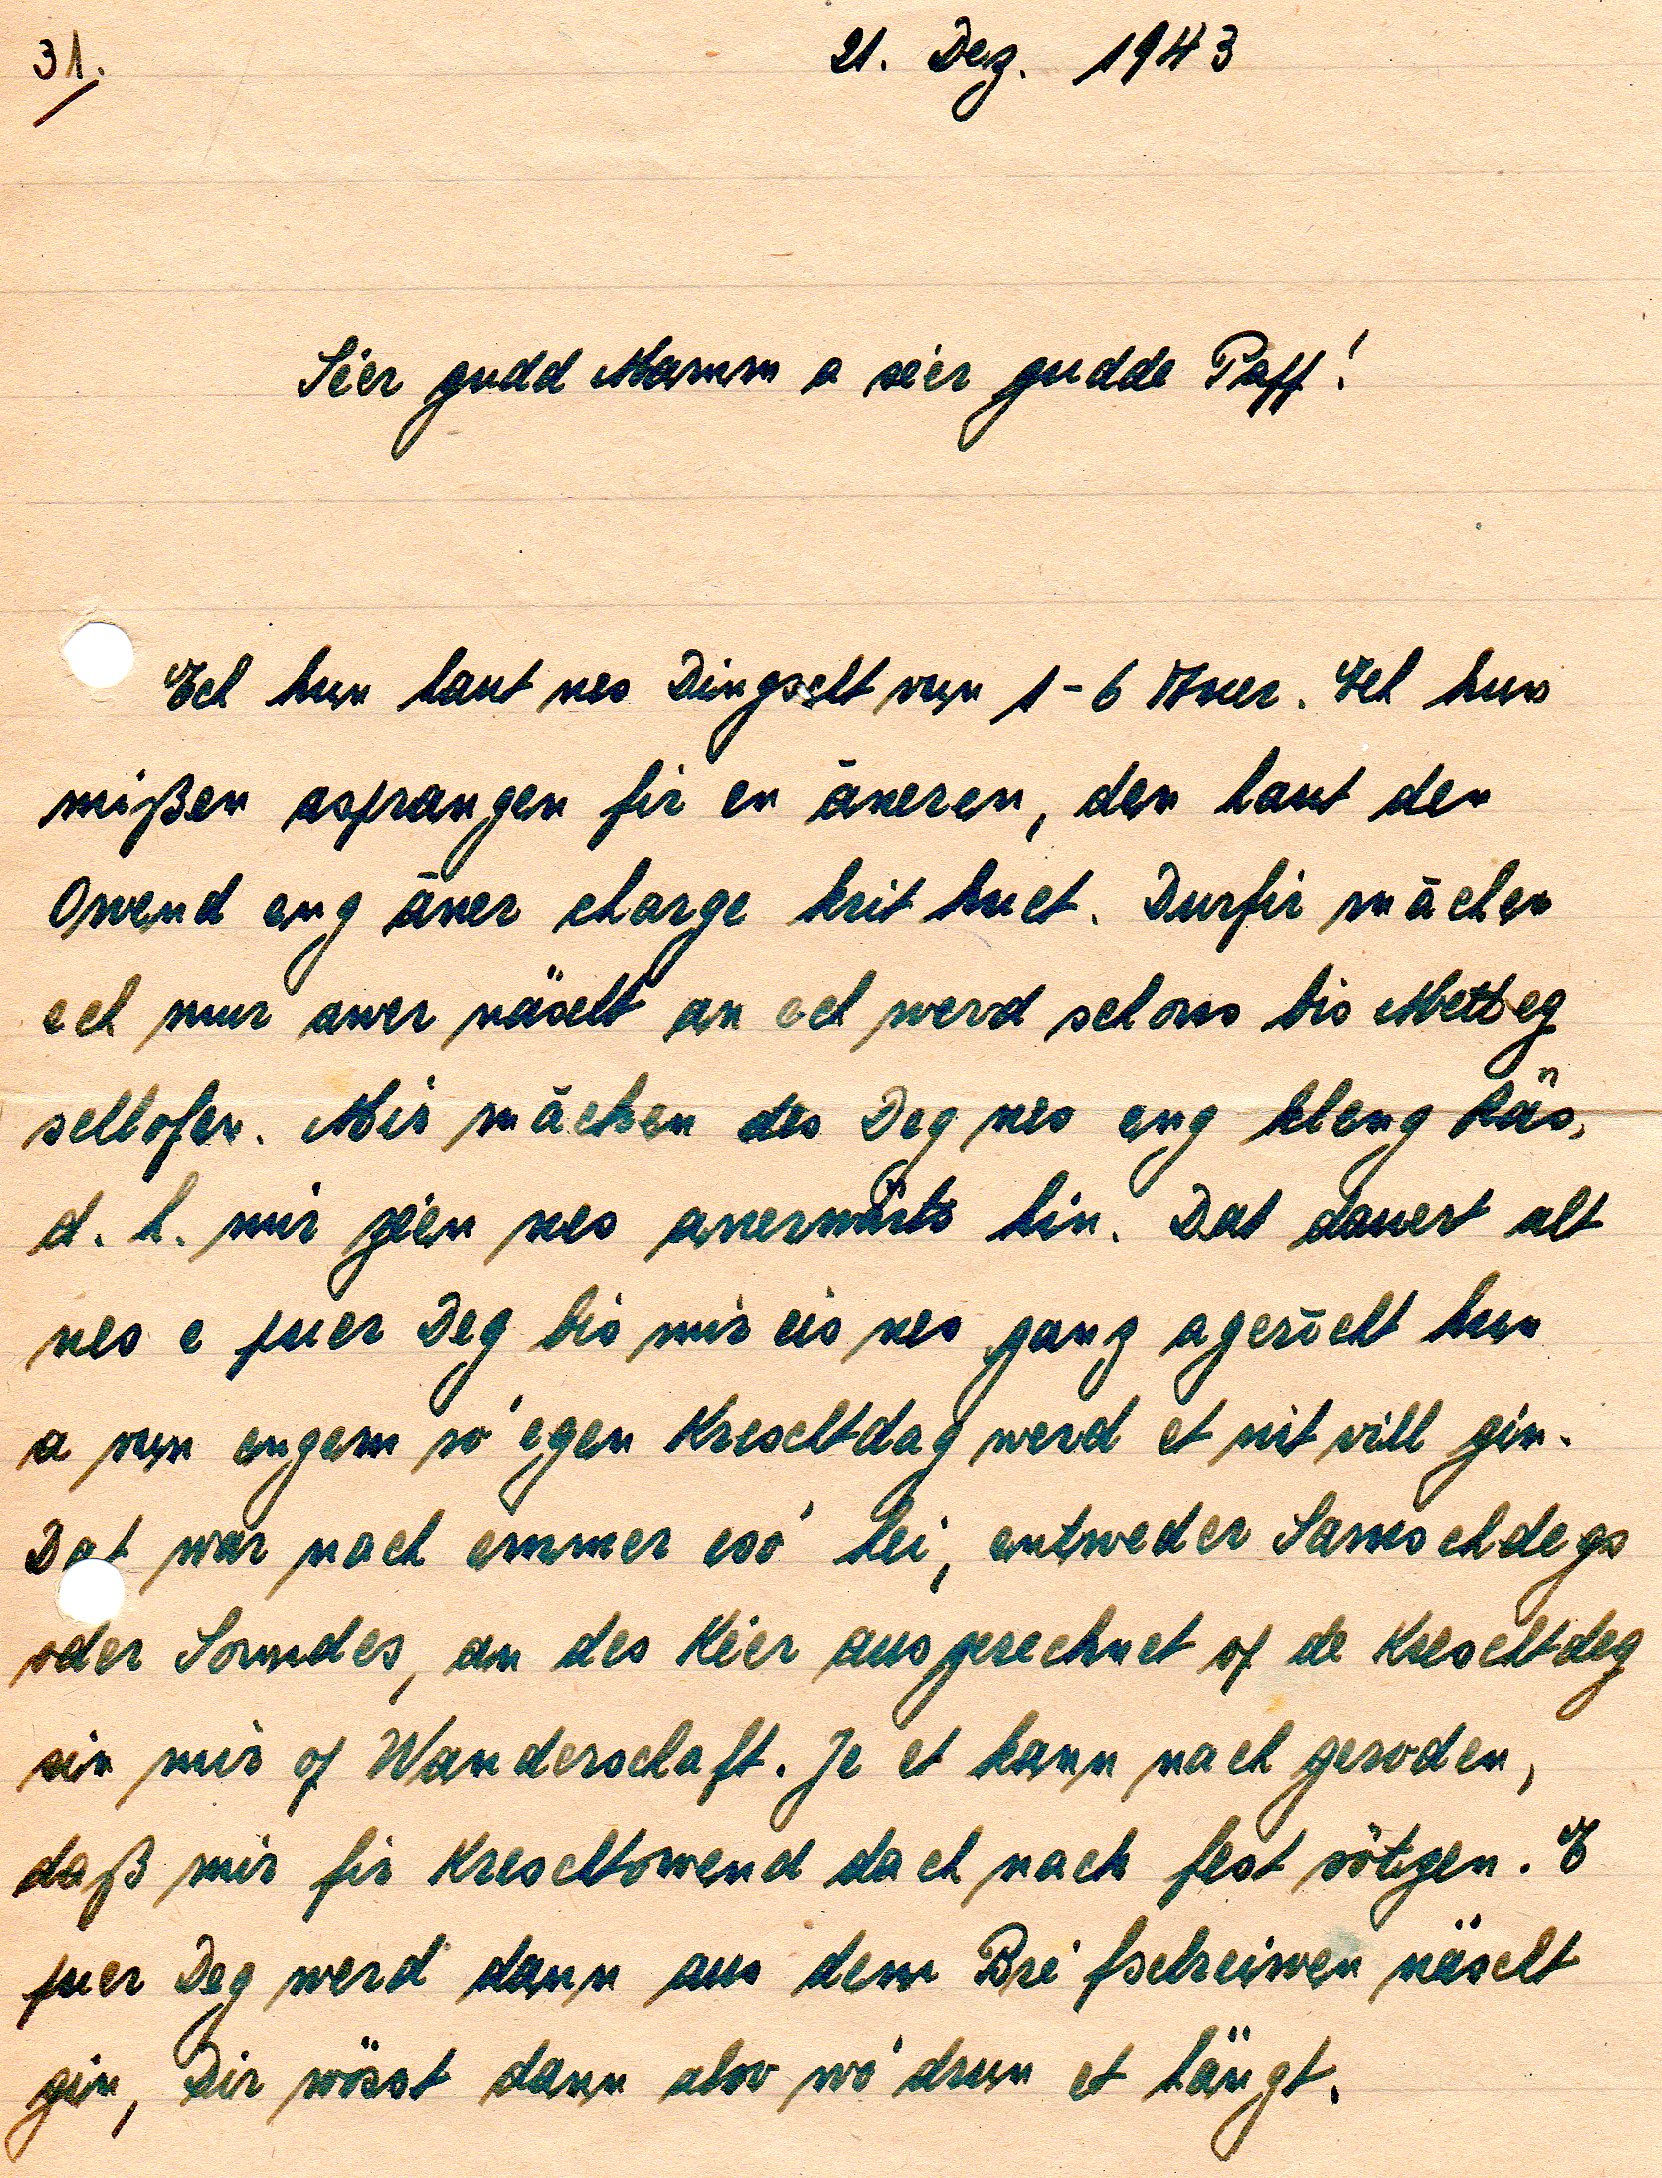 31.
21. Dez. 1943
Séer gudd Mamm a séer gudde Paff!
Ech hun haut nes Dingscht vun 1-6 Auer. Ech hun
mißen asprangen fir en āneren, den haut den
Owend eng āner charge krit huet. Durfir māchen
ech mur awer näscht an ech werd schons bis Metteg
schlofen. Mir māchen des Deg nes eng kleng Räs,
d. h. mir géen nes anerwärts hin. Dat dauert alt
nes e puer Deg bis mir eis nes ganz agericht hun
a vun engem só égen Kreschtdag werd et nit vill gin.
Dat war nach emmer esó hei, entweder Samschdegs
oder Sonndes, an des Kéer ausgerechnet of de Kreschtdeg
sin mir of Wanderschaft. Je et kann nach geroden,
daß mir fir Kreschtowend dach nach fest sötzen. E
puer Deg werd dann aus dem Bréfschreiwen näscht
gin, Dir wösst dann alsó wó drun et hängt.